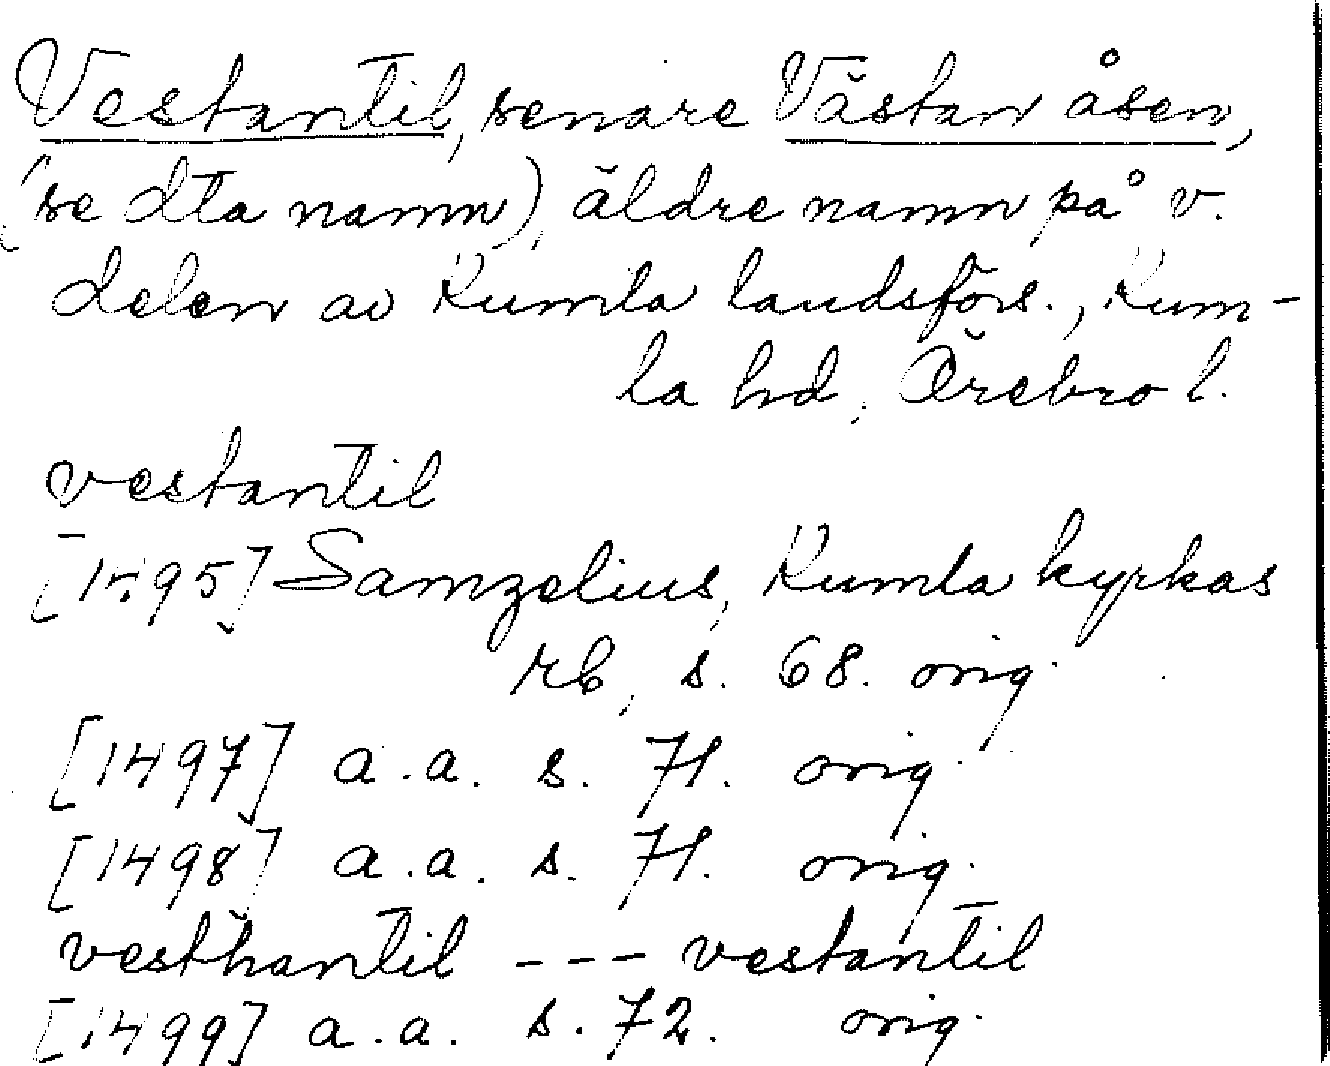 Vestantil, senare Västan åsen,
(se dta namn), äldre namn på v.
delen av Kumla landsförs., Kum-
la hd, Örebro l.
vestantil
[1495] Samzelius, Kumla kyrkas
rb, s. 68. orig.
[1497] a.a. s. 71. orig.
[1498] a.a. s. 71. orig.
vesthantil --- vestantil
[1499] a.a. s. 72. orig.